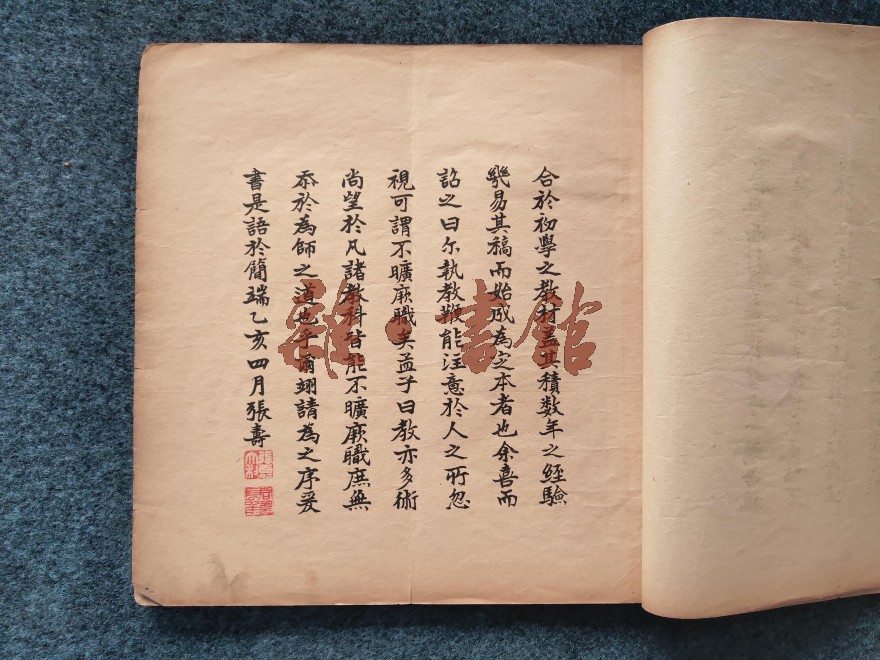 合於初學之教材蓋其積数年之經驗
幾易其稿而始成為定本者也余喜而
詔之曰尔執教鞭能注意於人之所忽
視可謂不曠厥職矣孟子曰教亦多術
尚望於凡諸教科皆能不曠厥職庶無
忝於為師之道也乎爾翊請為之序爰
書是語於簡端乙亥四月張壽
雜·書館